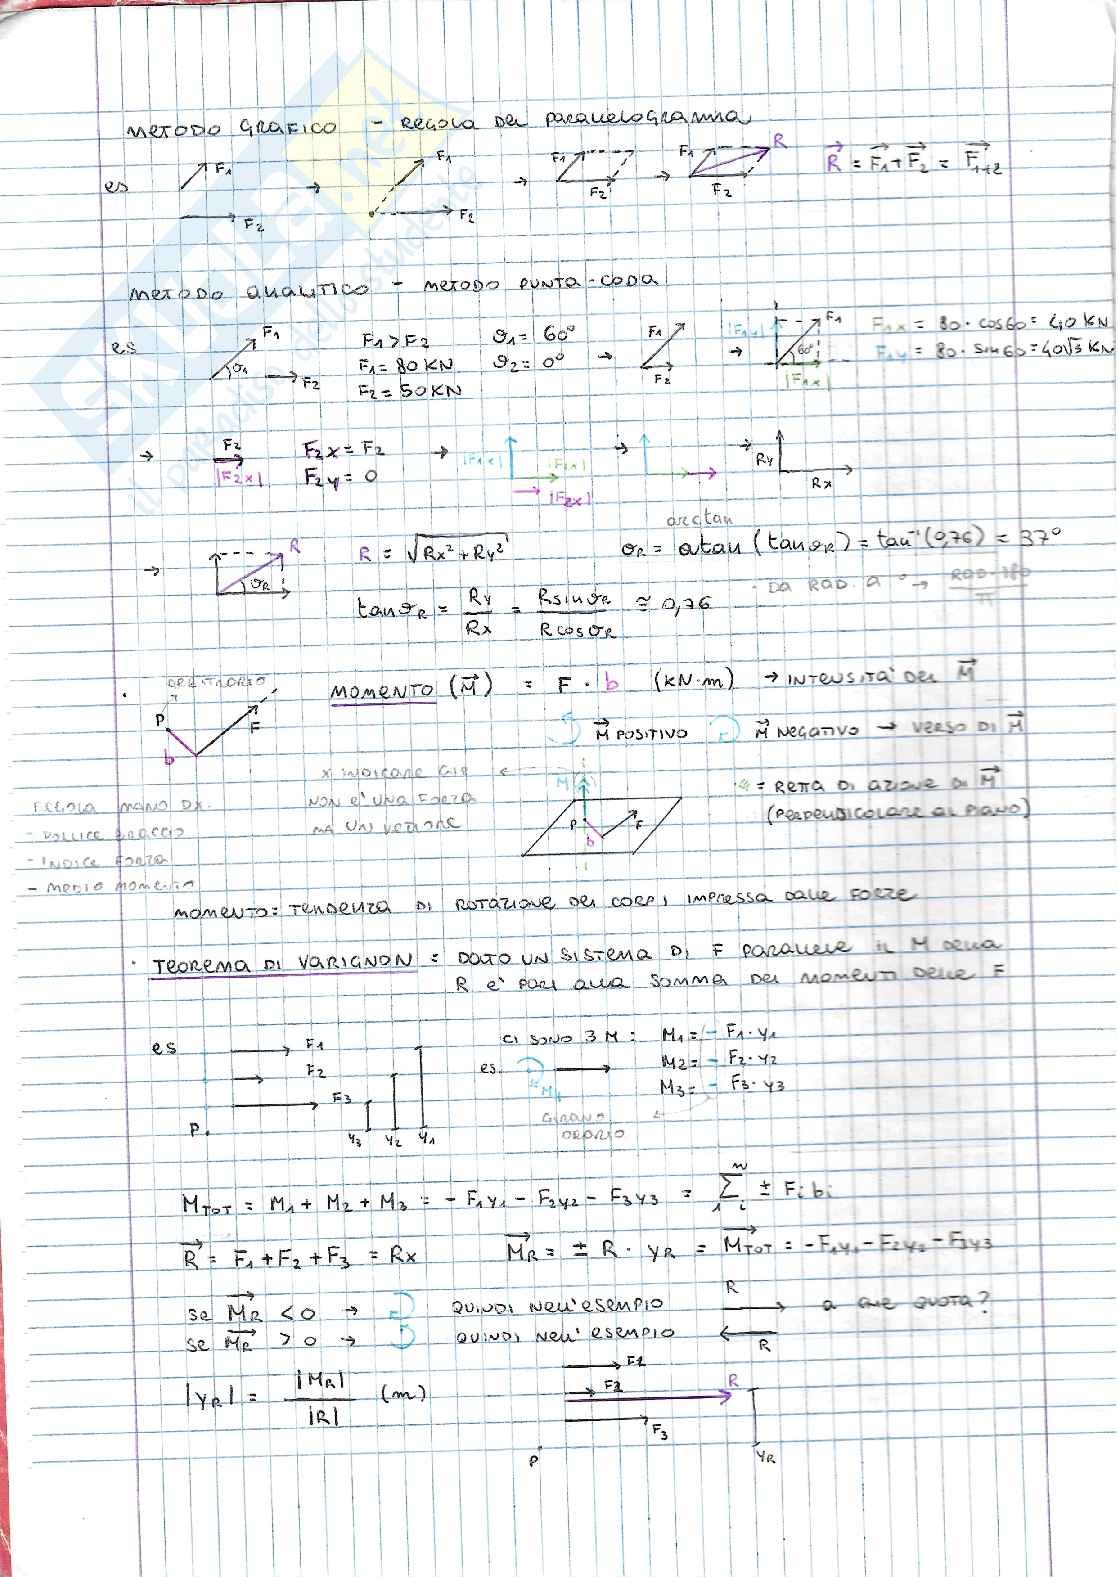 METODO GRAFICO - REGOLA DEL PARALLELOGRAMMA
es F1 F2 → F1 F2 → F1 F2 → F1 F2 R R = F1 + F2 = F1+2
METODO ANALITICO - METODO PUNTA-CODA
es F1 ϑ1 F2 F1 > F2 ϑ1 = 60° → F1 F2 → |F1y| F1 60° |F1x| F1x = 80 · cos60 = 40 KN
F1 = 80 KN ϑ2 = 0° F1y = 80 · sin60 = 40√3 KN
F2 = 50 KN
→ F2 |F2x| F2x = F2 → |F1x| |F1x| |F2x| → → Ry Rx
F2y = 0
arctan
→ R ϑR R = √Rx² + Ry² ϑR = atan (tanϑR) = tan⁻¹(0,76) = 37°
· DA RAD. A ° → RAD·180 / π
tanϑR = Ry / Rx = R sinϑR / R cosϑR ≅ 0,76
· ARBITRARIO P b F MOMENTO (M) = F · b (KN·m) → INTENSITÀ DEL M
M POSITIVO M NEGATIVO → VERSO DI M
x INDICARE CHE
NON E' UNA FORZA
MA UN VETTORE
M P b F = RETTA DI AZIONE DI M
(PERPENDICOLARE AL PIANO)
REGOLA MANO DX.
- POLLICE BRACCIO
- INDICE FORZA
- MEDIO MOMENTO
MOMENTO: TENDENZA DI ROTAZIONE DEI CORPI IMPRESSA DALLE FORZE
· TEOREMA DI VARIGNON = DATO UN SISTEMA DI F PARALLELE IL M DELLA
R E' PARI ALLA SOMMA DEI MOMENTI DELLE F
es F1 F2 F3 P. y3 y2 y1 CI SONO 3 M: M1 = - F1 · y1
es. M2 = - F2 · y2
M3 = - F3 · y3
GIRANO
ORARIO
MTOT = M1 + M2 + M3 = - F1y1 - F2y2 - F3y3 = Σ ± Fi bi
R = F1 + F2 + F3 = Rx MR = ± R · yR = MTOT = - F1y1 - F2y2 - F3y3
se MR < 0 → QUINDI NELL'ESEMPIO R A CHE QUOTA?
se MR > 0 → QUINDI NELL'ESEMPIO R
|yR| = |MR| / |R| (m) F1 F2 R F3 P yR